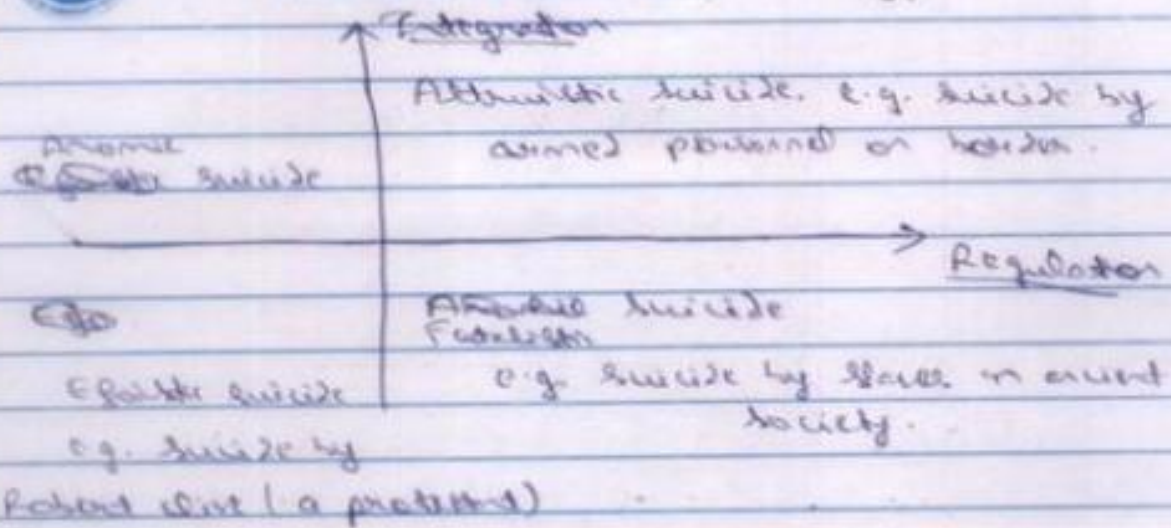 Integration
Altruistic suicide. e.g. suicide by
armed personnel on border.
Anomic
suicide
Regulation
suicide
Fatalistic
e.g. suicide by slaves in ancient
society.
Egoistic suicide
e.g. suicide by
Robert Clive (a protestant)